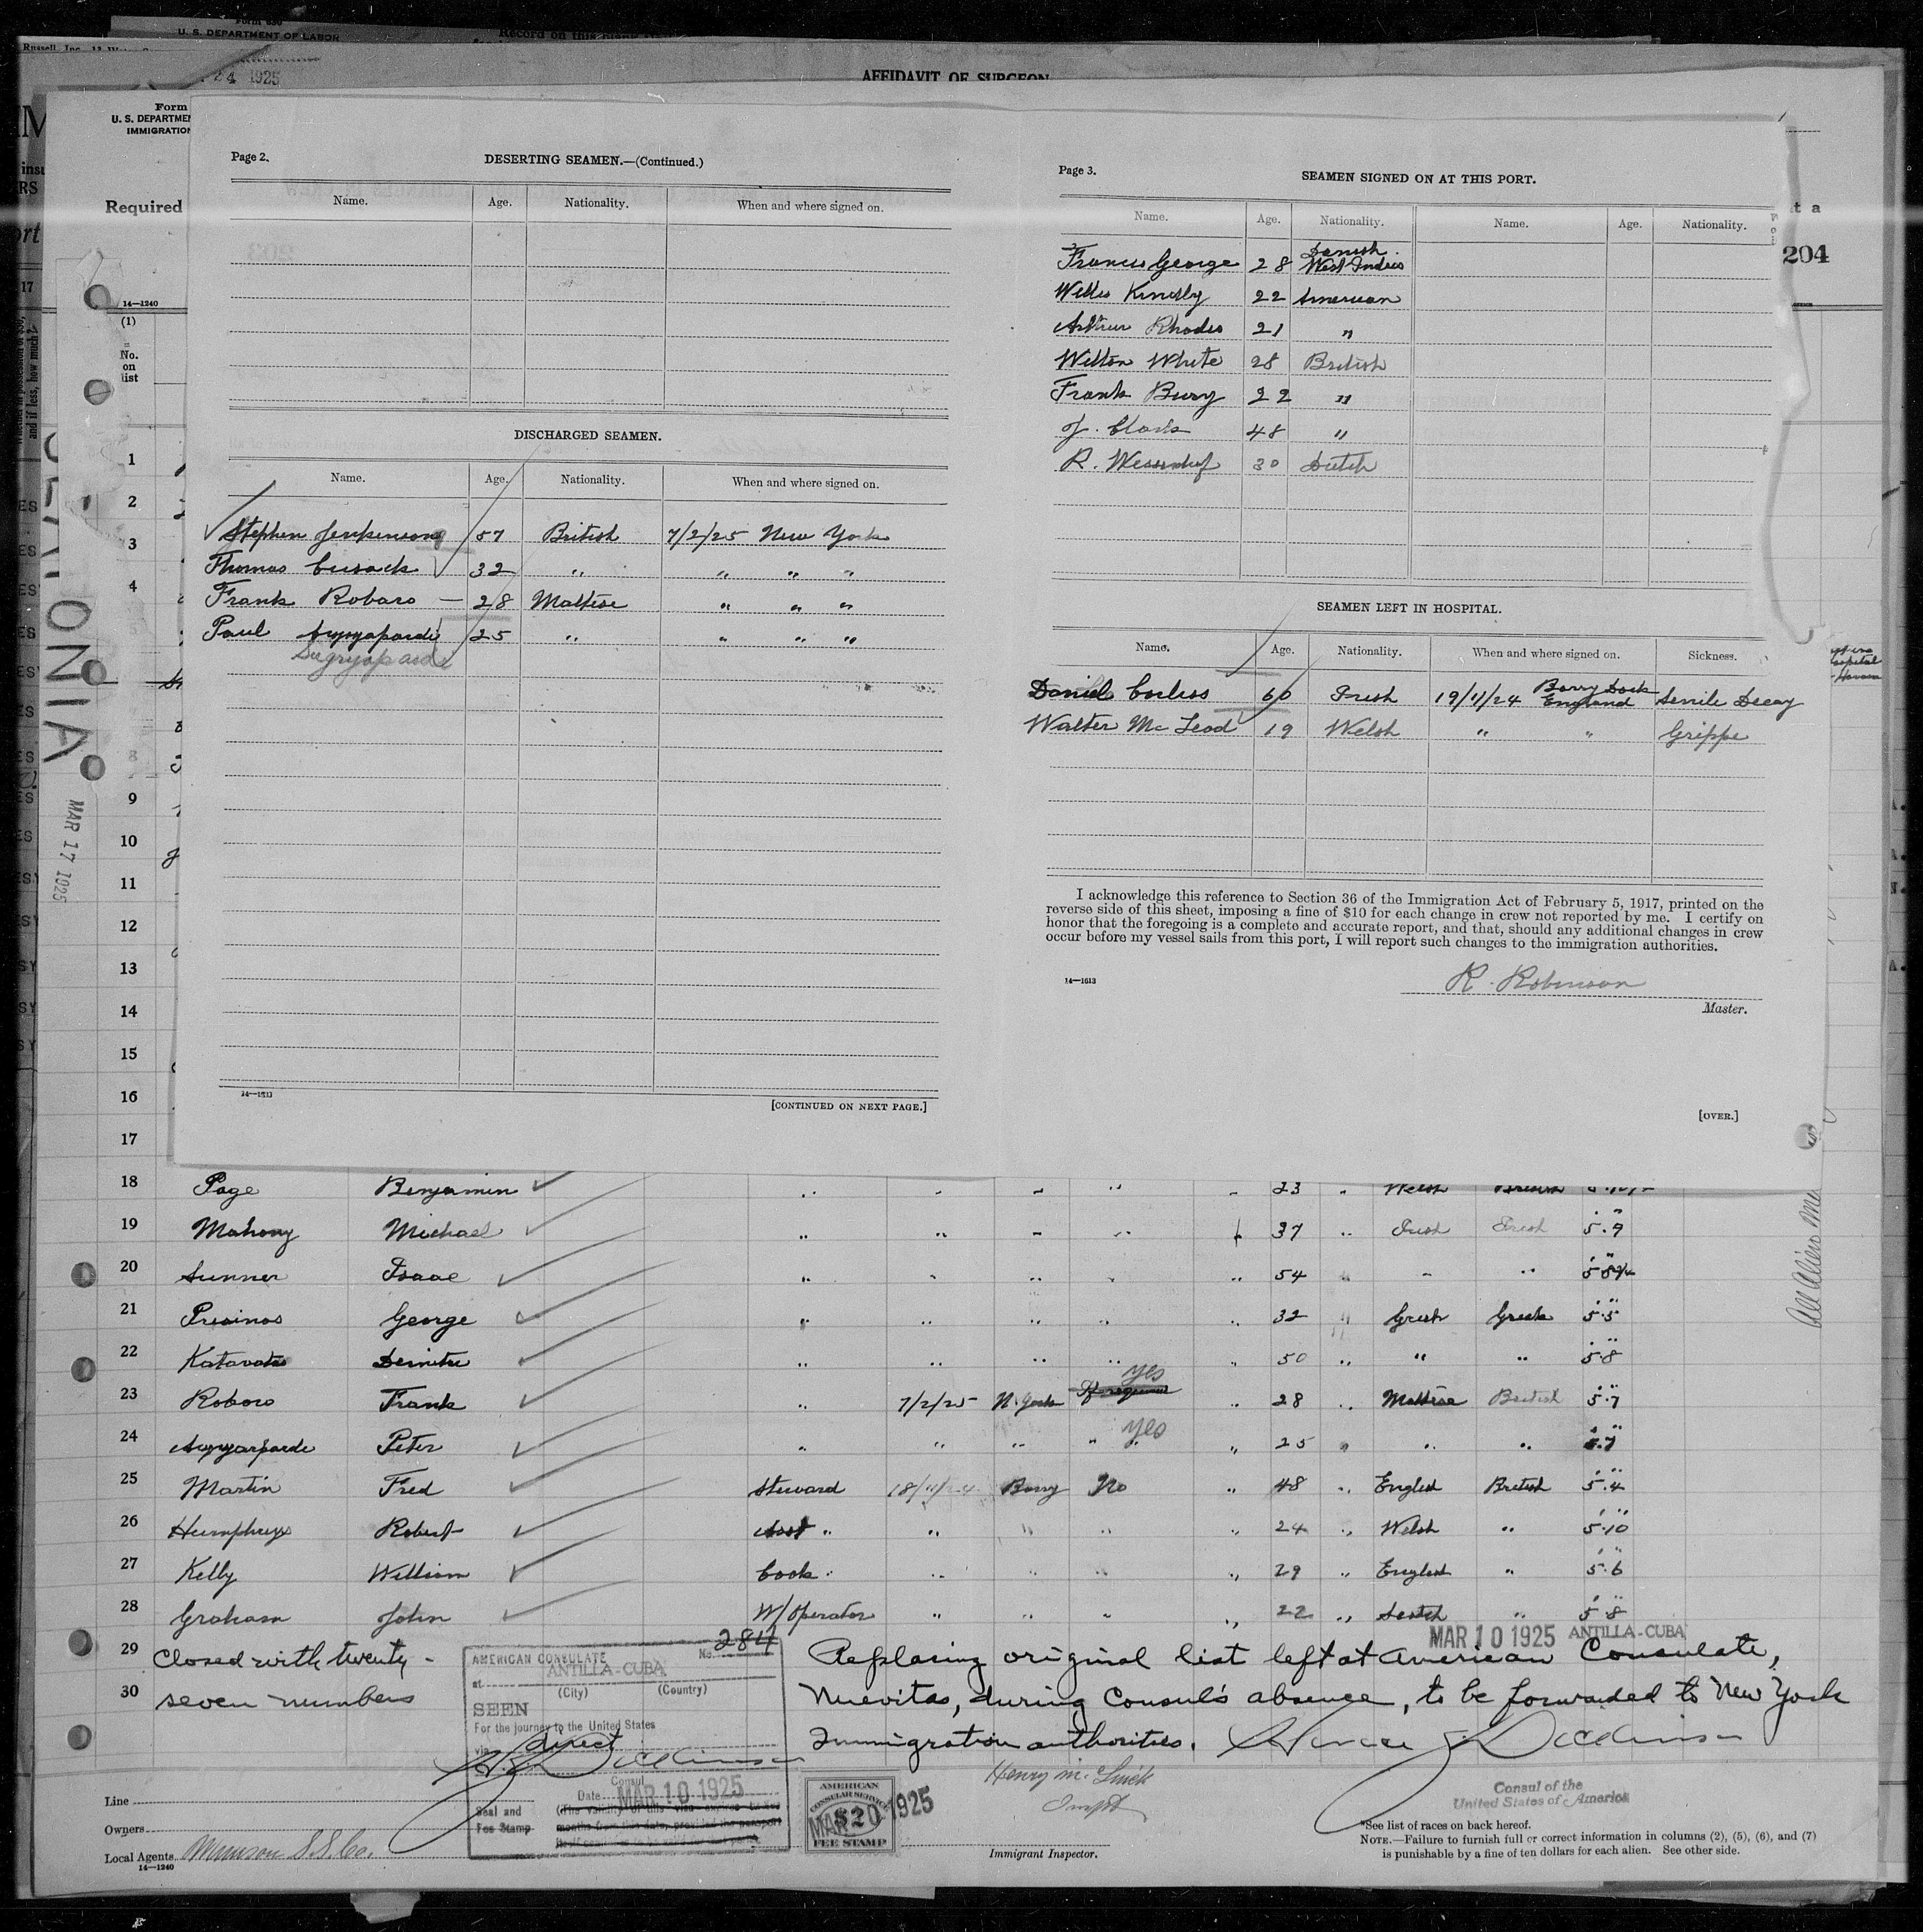 Form 680
U. S. DEPARTMENT OF LABOR
Record on this
Russell, Inc.
24 1925
AFFIDAVIT OF SURGEON
Form
U. S. DEPARTME
IMMIGRATION
Required
204
14—1240
(1)
No.
on
list
and if less, how much?
ONIA
MAR 17 1925
Page 2.
DESERTING SEAMEN.—(Continued.)
Name. Age. Nationality. When and where signed on.
DISCHARGED SEAMEN.
Name. Age. Nationality. When and where signed on.
Stephen Jenkinson 57 British 7/2/25 New York
Thomas Cusack 32 " " " "
Frank Roboro — 28 Maltese " " "
Paul 25 " " " "
14—1613
[CONTINUED ON NEXT PAGE.]
Page 3.
SEAMEN SIGNED ON AT THIS PORT.
Name. Age. Nationality. Name. Age. Nationality.
Francis George 28 Danish West Indies
22 American
Arthur Rhodes 21 "
Wilton White 28 British
Frank 22 "
J. 48 "
R. 30 Dutch
SEAMEN LEFT IN HOSPITAL.
Name. Age. Nationality. When and where signed on. Sickness.
Daniel Corless 60 Irish 19/11/24 Barry Dock England Senile Decay
Walter Mc Leod 19 Welsh " " Grippe
I acknowledge this reference to Section 36 of the Immigration Act of February 5, 1917, printed on the
reverse side of this sheet, imposing a fine of $10 for each change in crew not reported by me. I certify on
honor that the foregoing is a complete and accurate report, and that, should any additional changes in crew
occur before my vessel sails from this port, I will report such changes to the immigration authorities.
14—1613
R. Robinson
Master.
[OVER.]
1
2
3
4
8
9
10
11
12
13
14
15
16
17
18 Page Benjamin " " " " " 23 " Welsh
19 Mahony Michael " " " " 37 " Irish Irish 5' 9"
20 Sunner Isaac " " " " " 54 " " "
21 George " " " " " 32 " Greek Greek 5' 5"
22 " " " " " 50 " " " 5' 8"
23 Roboro Frank " 7/2/25 N. York yes " 28 " Maltese British 5' 7"
24 Peter " " " " yes " 25 " " "
25 Martin Fred Steward 18/11/24 Barry No " 48 " English British 5' 4"
26 Humphreys Robert Asst " " " " " 24 " Welsh " 5' 10"
27 Kelly William Cook " " " " " 29 " English " 5' 6"
28 Graham John W/operator " " " " 22 " Scotch " 5' 8"
MAR 10 1925 ANTILLA-CUBA
29 Closed with twenty-
30 seven numbers
AMERICAN CONSULATE No. 284
at ANTILLA-CUBA
(City) (Country)
SEEN
For the journey to the United States
via direct
Consul
Date MAR 10 1925
Seal and
Fee Stamp
Replacing original list left at American Consulate,
Nuevitas, during Consul's absence, to be forwarded to New York
Immigration authorities.
All Alien
Line
Owners
Local Agents Munson S.S. Co.
14—1240
AMERICAN
CONSULAR SERVICE
$2
FEE STAMP
MAR 10 1925
Immigrant Inspector.
Consul of the
United States of America
*See list of races on back hereof.
NOTE.—Failure to furnish full or correct information in columns (2), (5), (6), and (7)
is punishable by a fine of ten dollars for each alien. See other side.